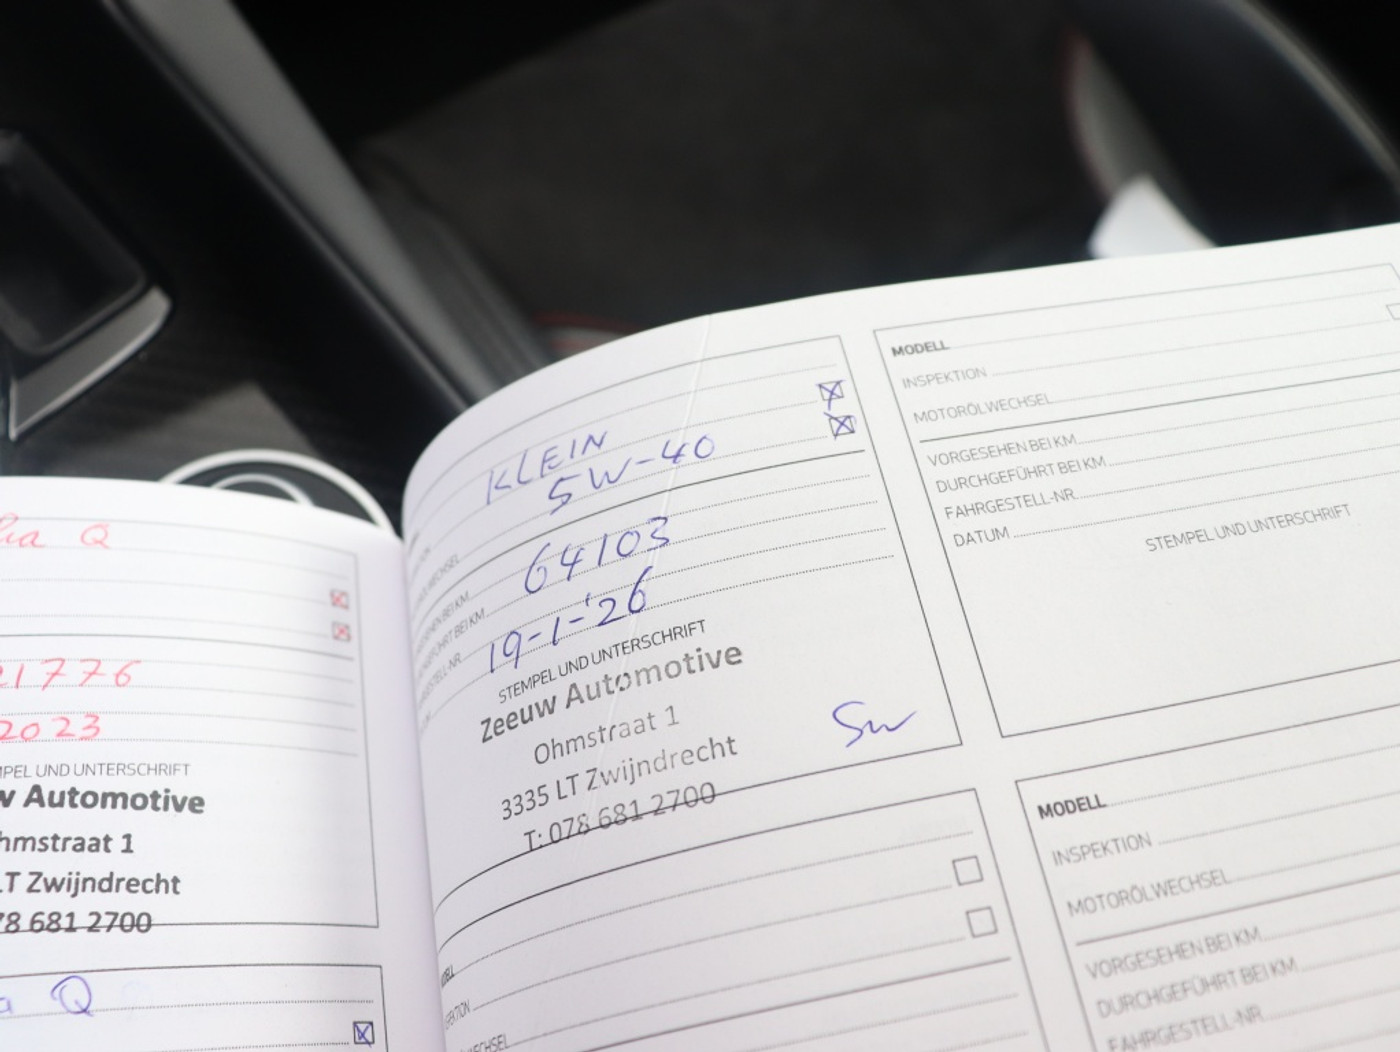 Q
1776
2023
UND UNTERSCHRIFT
Automotive
straat 1
LT Zwijndrecht
78 681 2700
Q
KLEIN
5W-40
64103
19-1-'26
STEMPEL UND UNTERSCHRIFT
Zeeuw Automotive
Ohmstraat 1
3335 LT Zwijndrecht
T: 078 681 2700
SW
MODELL
INSPEKTION
MOTORÖLWECHSEL
VORGESEHEN BEI KM
DURCHGEFÜHRT BEI KM
FAHRGESTELL-NR.
DATUM
STEMPEL UND UNTERSCHRIFT
MODELL
INSPEKTION
MOTORÖLWECHSEL
VORGESEHEN BEI KM
DURCHGEFÜHRT BEI KM
FAHRGESTELL-NR.